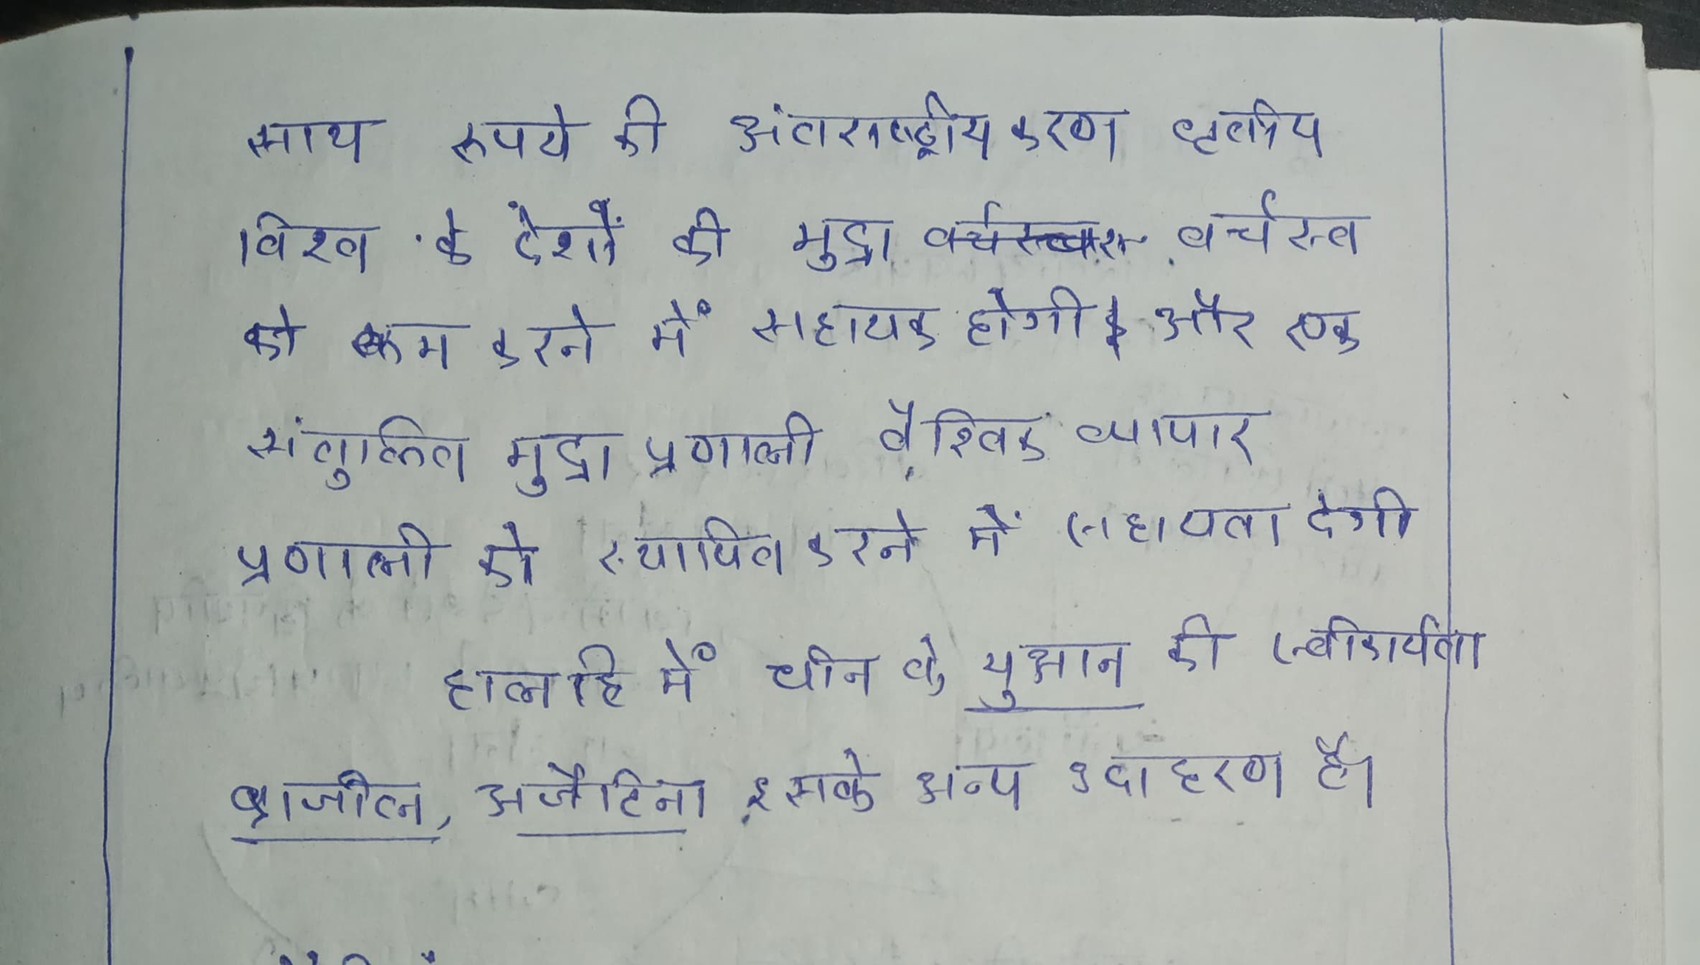 साथ रुपये की अंतराष्ट्रीयकरण तृतीय
विश्व के देशों की मुद्रा वर्चस्व
को कम करने में सहायक होगी और एक
संतुलित मुद्रा प्रणाली वैश्विक व्यापार
प्रणाली को स्थापित करने में सहायता देगी
हालहि में चीन के युआन की स्वीकार्यता
ब्राजील, अर्जेटिना इसके अन्य उदाहरण है।